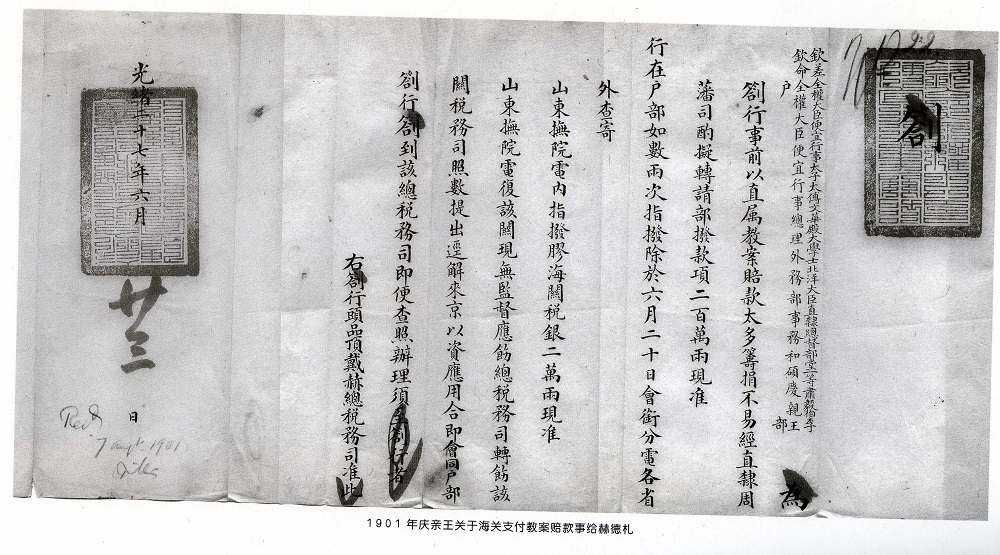 劄
欽差全權大臣便宜行事太子太傅文華殿大學士北洋大臣直隸總督部堂一等肅毅伯李
欽命全權大臣便宜行事總理外務部事務和碩慶親王
戶部
為
劄行事前以直屬教案賠款太多籌捐不易經直隸周
藩司酌擬轉請部撥款項二百萬兩現准
行在戶部如數兩次指撥除於六月二十日會銜分電各省
外查寄
山東撫院電內指撥膠海關稅銀二萬兩現准
山東撫院電復該關現無監督應飭總稅務司轉飭該
關稅務司照數提出逕解來京以資應用合即會同戶部
劄行劄到該總稅務司即便查照辦理須至劄行者
右劄行頭品頂戴赫總稅務司准此
光緒二十七年六月
廿三
日
Recd
7 Augt. 1901
1901 年庆亲王关于海关支付教案赔款事给赫德札